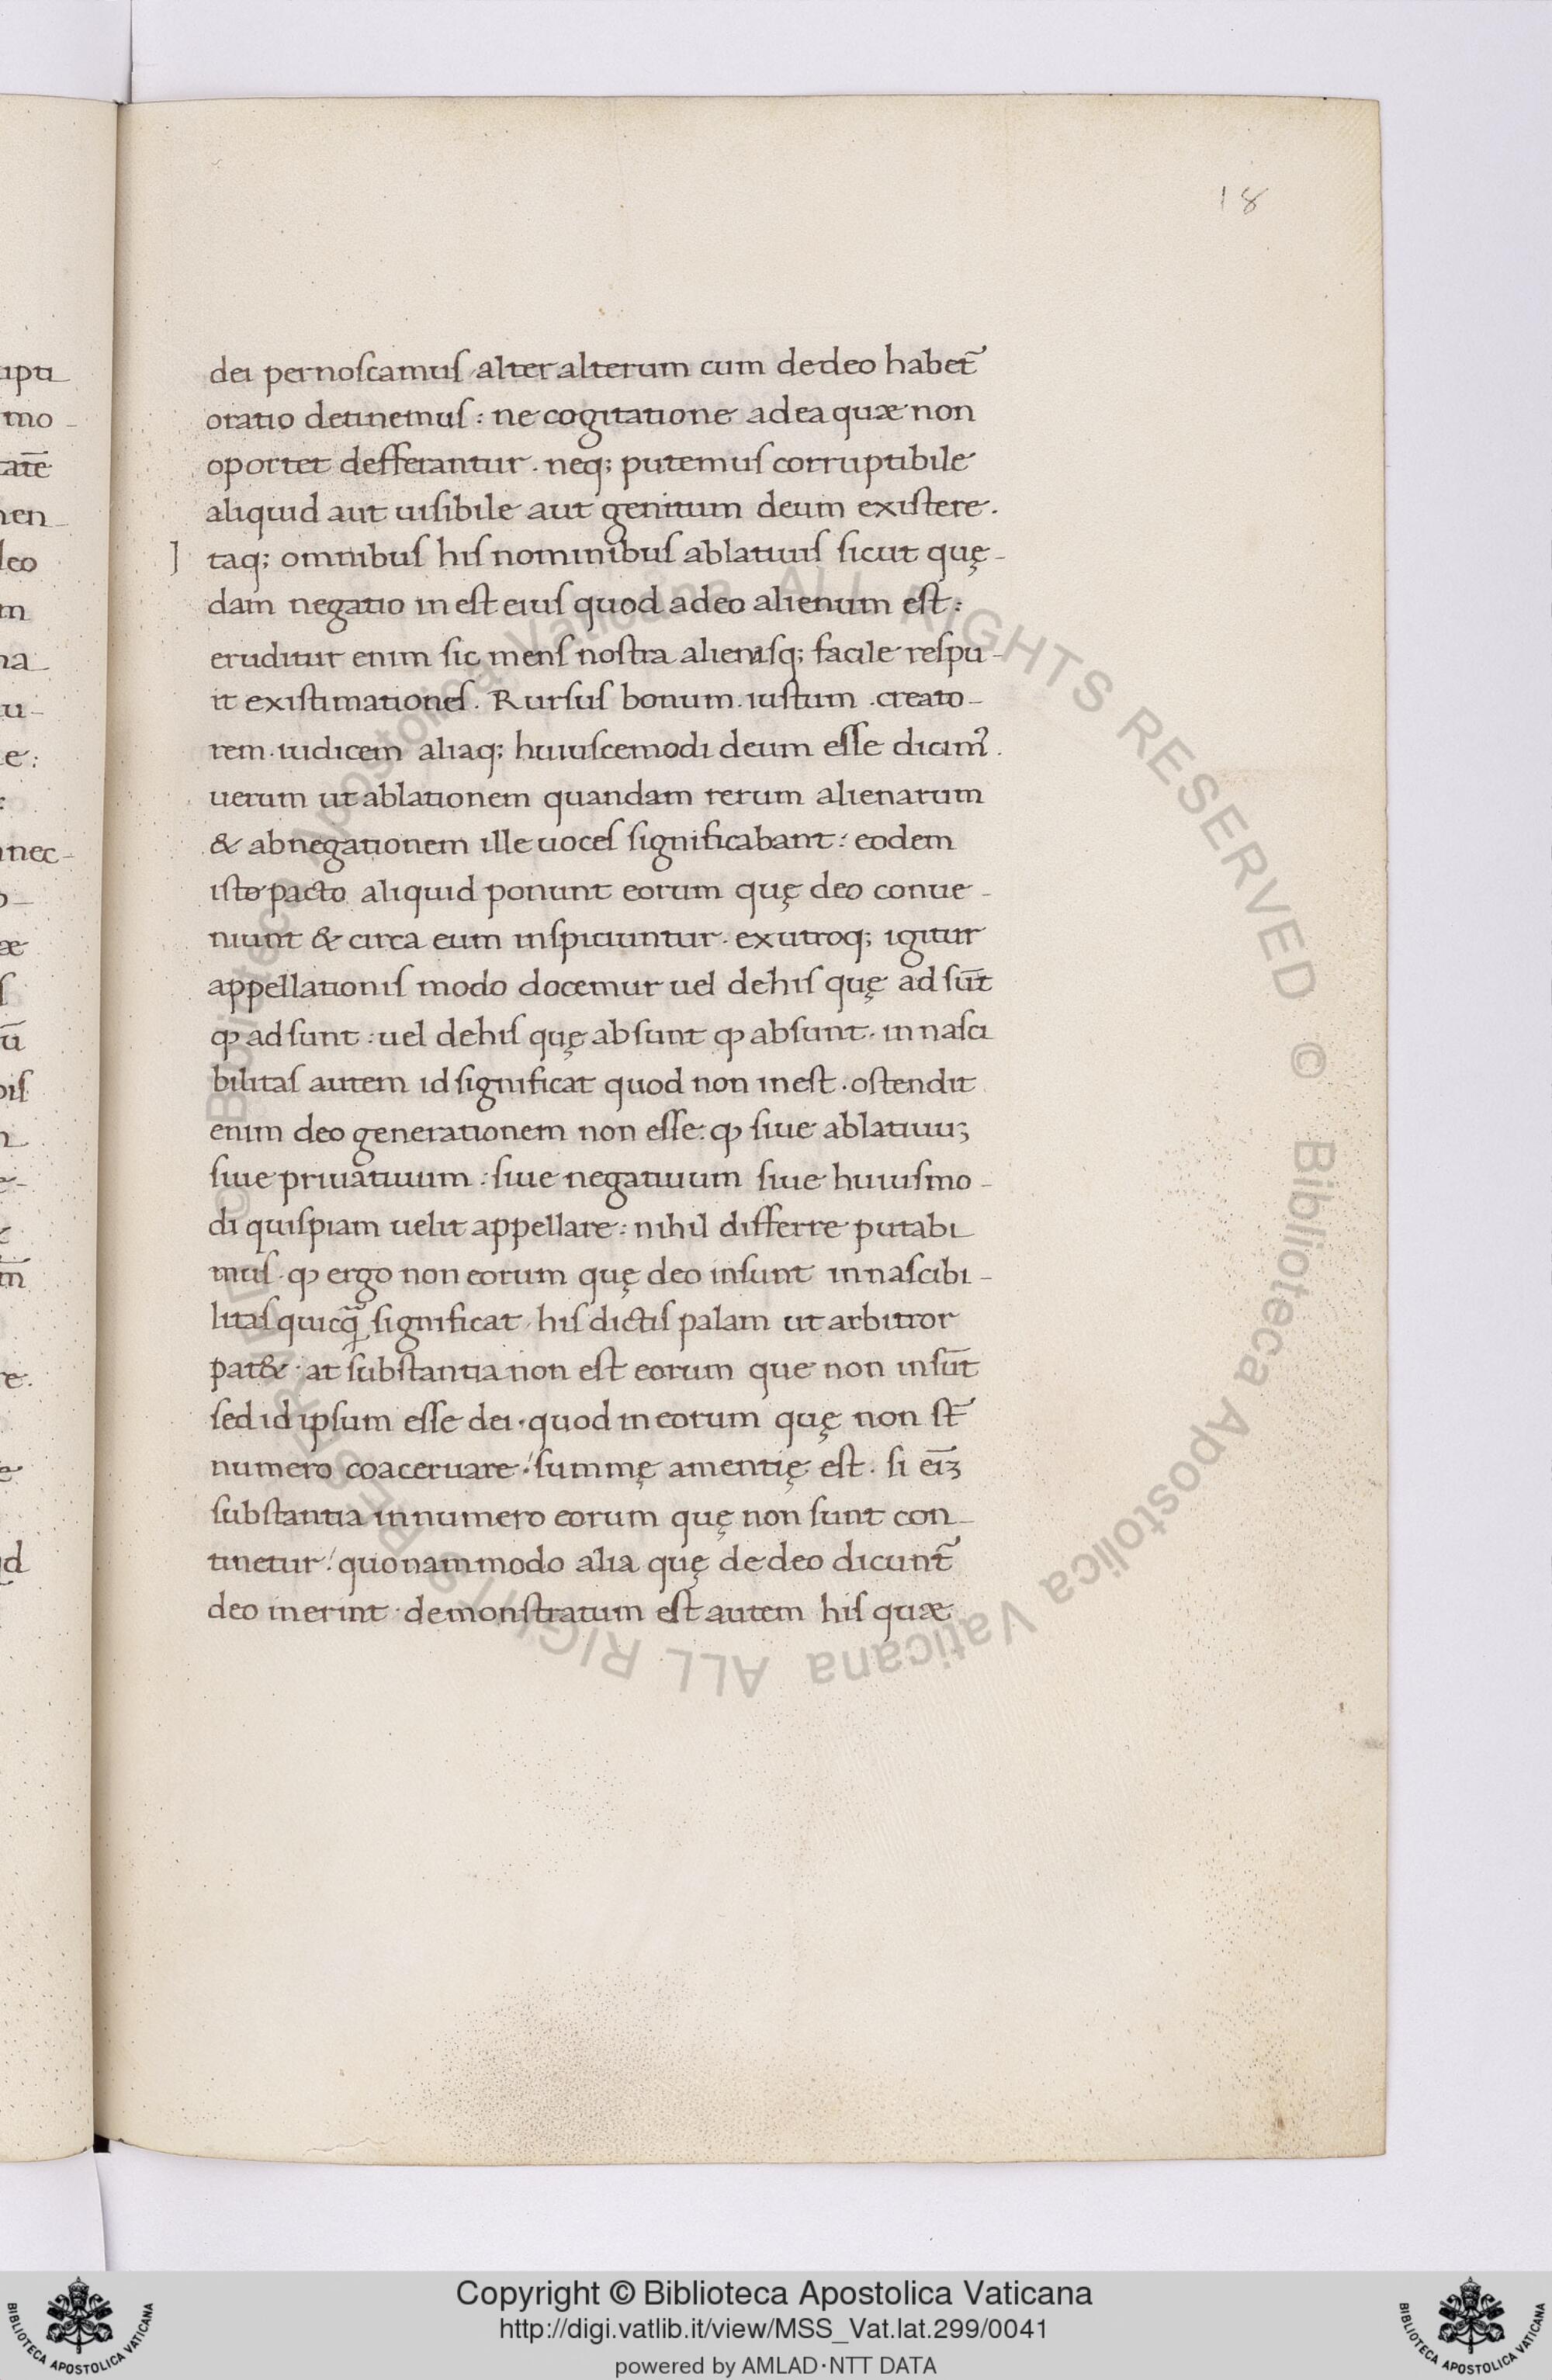 18
dei pernoscamus alter alterum cum de deo habet̃
oratio detinemus: ne cogitatione ad ea quæ non
oportet defferantur. neq; putemus corruptibile
aliquid aut uisibile aut genitum deum existere.
I taq; omnibus his nominibus ablatiuis sicut quę-
dam negatio inest eius quod a deo alienum est:
eruditur enim sic mens nostra alienisq; facile respu-
it existimationes. Rursus bonum. iustum. creato-
rem. iudicem aliaq; huiuscemodi deum esse dicim᷒.
uerum ut ablationem quandam rerum alienarum
& abnegationem ille uoces significabant: eodem
isto pacto aliquid ponunt eorum quę deo conue-
niunt & circa eum inspiciuntur. ex utroq; igitur
appellationis modo docemur uel de his quę adsūt
ꝙ adsunt: uel de his quę absunt ꝙ absunt. innasci
bilitas autem id significat quod non inest. ostendit
enim deo generationem non esse. ꝙ siue ablatiuuꝫ
siue priuatiuum: siue negatiuum siue huiusmo-
di quispiam uelit appellare: nihil differre putabi
mus. ꝙ ergo non eorum quę deo insunt innascibi-
litas quicq̃ significat, his dictis palam ut arbitror
pat&. at substantia non est eorum que non insūt
sed id ipsum esse dei. quod in eorum quę non st̃
numero coaceruare: summę amentię est. si eīꝫ
substantia in numero eorum quę non sunt con-
tinetur: quonam modo alia quę de deo dicunt̃
deo inerint. demonstratum est autem his quæ
Copyright © Biblioteca Apostolica Vaticana
http://digi.vatlib.it/view/MSS_Vat.lat.299/0041
powered by AMLAD·NTT DATA